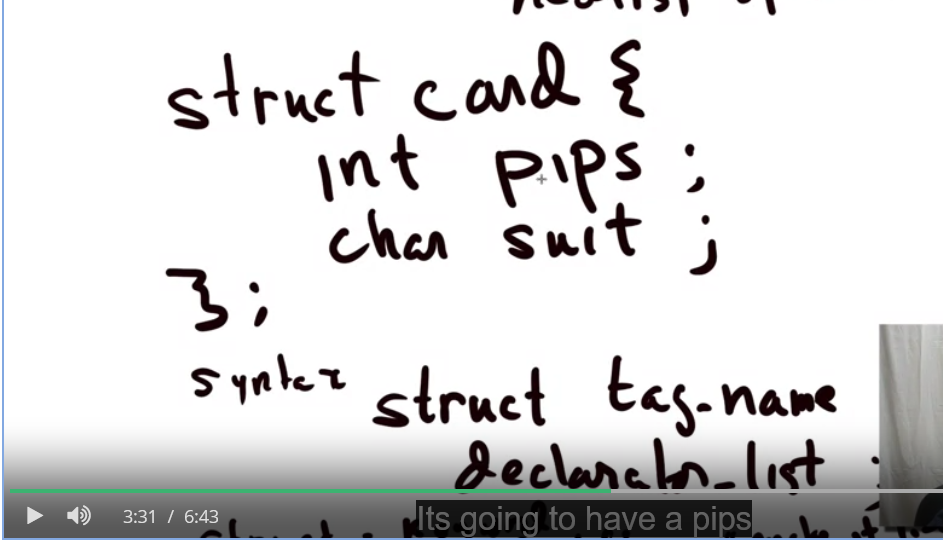 struct card {
int pips ;
char suit ;
} ;
syntax struct tag_name
declarator_list ;
3:31 / 6:43
Its going to have a pips